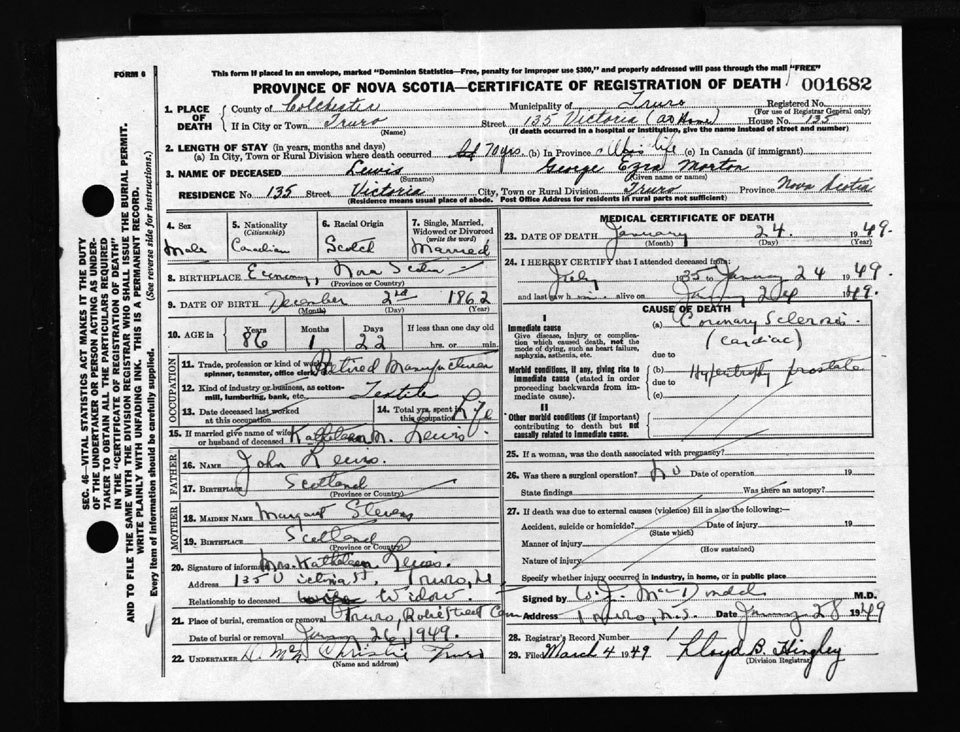 FORM 6
This form if placed in an envelope, marked "Dominion Statistics—Free, penalty for improper use $300," and properly addressed will pass through the mail "FREE"
PROVINCE OF NOVA SCOTIA—CERTIFICATE OF REGISTRATION OF DEATH 001682
SEC. 46—VITAL STATISTICS ACT MAKES IT THE DUTY
OF THE UNDERTAKER OR PERSON ACTING AS UNDER-
TAKER TO OBTAIN ALL THE PARTICULARS REQUIRED
IN THE "CERTIFICATE OF REGISTRATION OF DEATH"
AND TO FILE THE SAME WITH THE DIVISION REGISTRAR WHO SHALL ISSUE THE BURIAL PERMIT.
WRITE PLAINLY WITH UNFADING INK. THIS IS A PERMANENT RECORD.
Every item of information should be carefully supplied. (See reverse side for instructions.)
1. PLACE OF DEATH County of Colchester Municipality of Truro Registered No.
(For use of Registrar General only)
If in City or Town Truro Street 135 Victoria (at Home) House No. 135
(Name) (If death occurred in a hospital or institution, give the name instead of street and number)
2. LENGTH OF STAY (in years, months and days)
(a) In City, Town or Rural Division where death occurred 70 yrs. (b) In Province life (c) In Canada (if immigrant)
3. NAME OF DECEASED Lewis George Ezra Morton
(Surname) (Given name or names)
RESIDENCE No. 135 Street Victoria City, Town or Rural Division Truro Province Nova Scotia
(Residence means usual place of abode. Post Office Address for residents in rural parts not sufficient)
4. Sex Male
5. Nationality (Citizenship) Canadian
6. Racial Origin Scotch
7. Single, Married, Widowed or Divorced (write the word) Married
8. BIRTHPLACE Economy, Nova Scotia
(Province or Country)
9. DATE OF BIRTH December 2nd 1862
(Month) (Day) (Year)
10. AGE in Years 86 Months 1 Days 22 If less than one day old hrs. or min.
OCCUPATION
11. Trade, profession or kind of work as spinner, teamster, office clerk, etc. Retired Manufacturer
12. Kind of industry or business, as cotton-mill, lumbering, bank, etc. Textile
13. Date deceased last worked at this occupation
14. Total yrs. spent in this occupation Life
15. If married give name of wife or husband of deceased Kathleen N. Lewis
FATHER
16. NAME John Lewis
17. BIRTHPLACE Scotland
(Province or Country)
MOTHER
18. MAIDEN NAME Margaret Stevens
19. BIRTHPLACE Scotland
(Province or Country)
20. Signature of informant Mrs. Kathleen Lewis
Address 135 Victoria St, Truro,
Relationship to deceased Widow
21. Place of burial, cremation or removal Truro, Robie Street Cem
Date of burial or removal January 26, 1949.
22. UNDERTAKER Christie Truro
(Name and address)
MEDICAL CERTIFICATE OF DEATH
23. DATE OF DEATH January 24. 1949.
(Month) (Day) (Year)
24. I HEREBY CERTIFY that I attended deceased from:
July 1935 to January 24 1949.
and last saw him alive on January 24 1949.
CAUSE OF DEATH
I
Immediate cause
Give disease, injury or complication which caused death, not the mode of dying, such as heart failure, asphyxia, asthenia, etc.
(a) Coronary Sclerosis.
(Cardiac)
due to
Morbid conditions, if any, giving rise to immediate cause (stated in order proceeding backwards from immediate cause).
(b) Hypertrophy prostate
due to
(c)
II
Other morbid conditions (if important) contributing to death but not causally related to immediate cause.
25. If a woman, was the death associated with pregnancy?
26. Was there a surgical operation? No Date of operation 19
State findings Was there an autopsy?
27. If death was due to external causes (violence) fill in also the following:—
Accident, suicide or homicide? Date of injury 19
(State which)
Manner of injury
(How sustained)
Nature of injury
Specify whether injury occurred in industry, in home, or in public place
Signed by M.D.
Address Truro, N.S. Date January 28 1949
28. Registrar's Record Number 1
29. Filed March 4 1949 Lloyd B. Hingley
(Division Registrar)